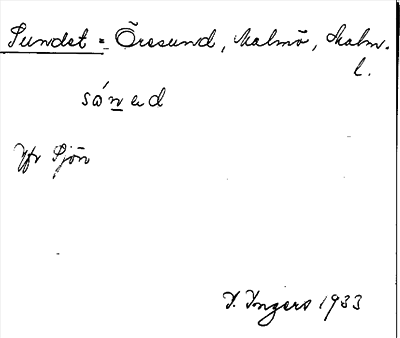 Sundet = Öresund, Malmö, Malm.
l.
sónad
Jfr Sjön
I. Ingers 1933